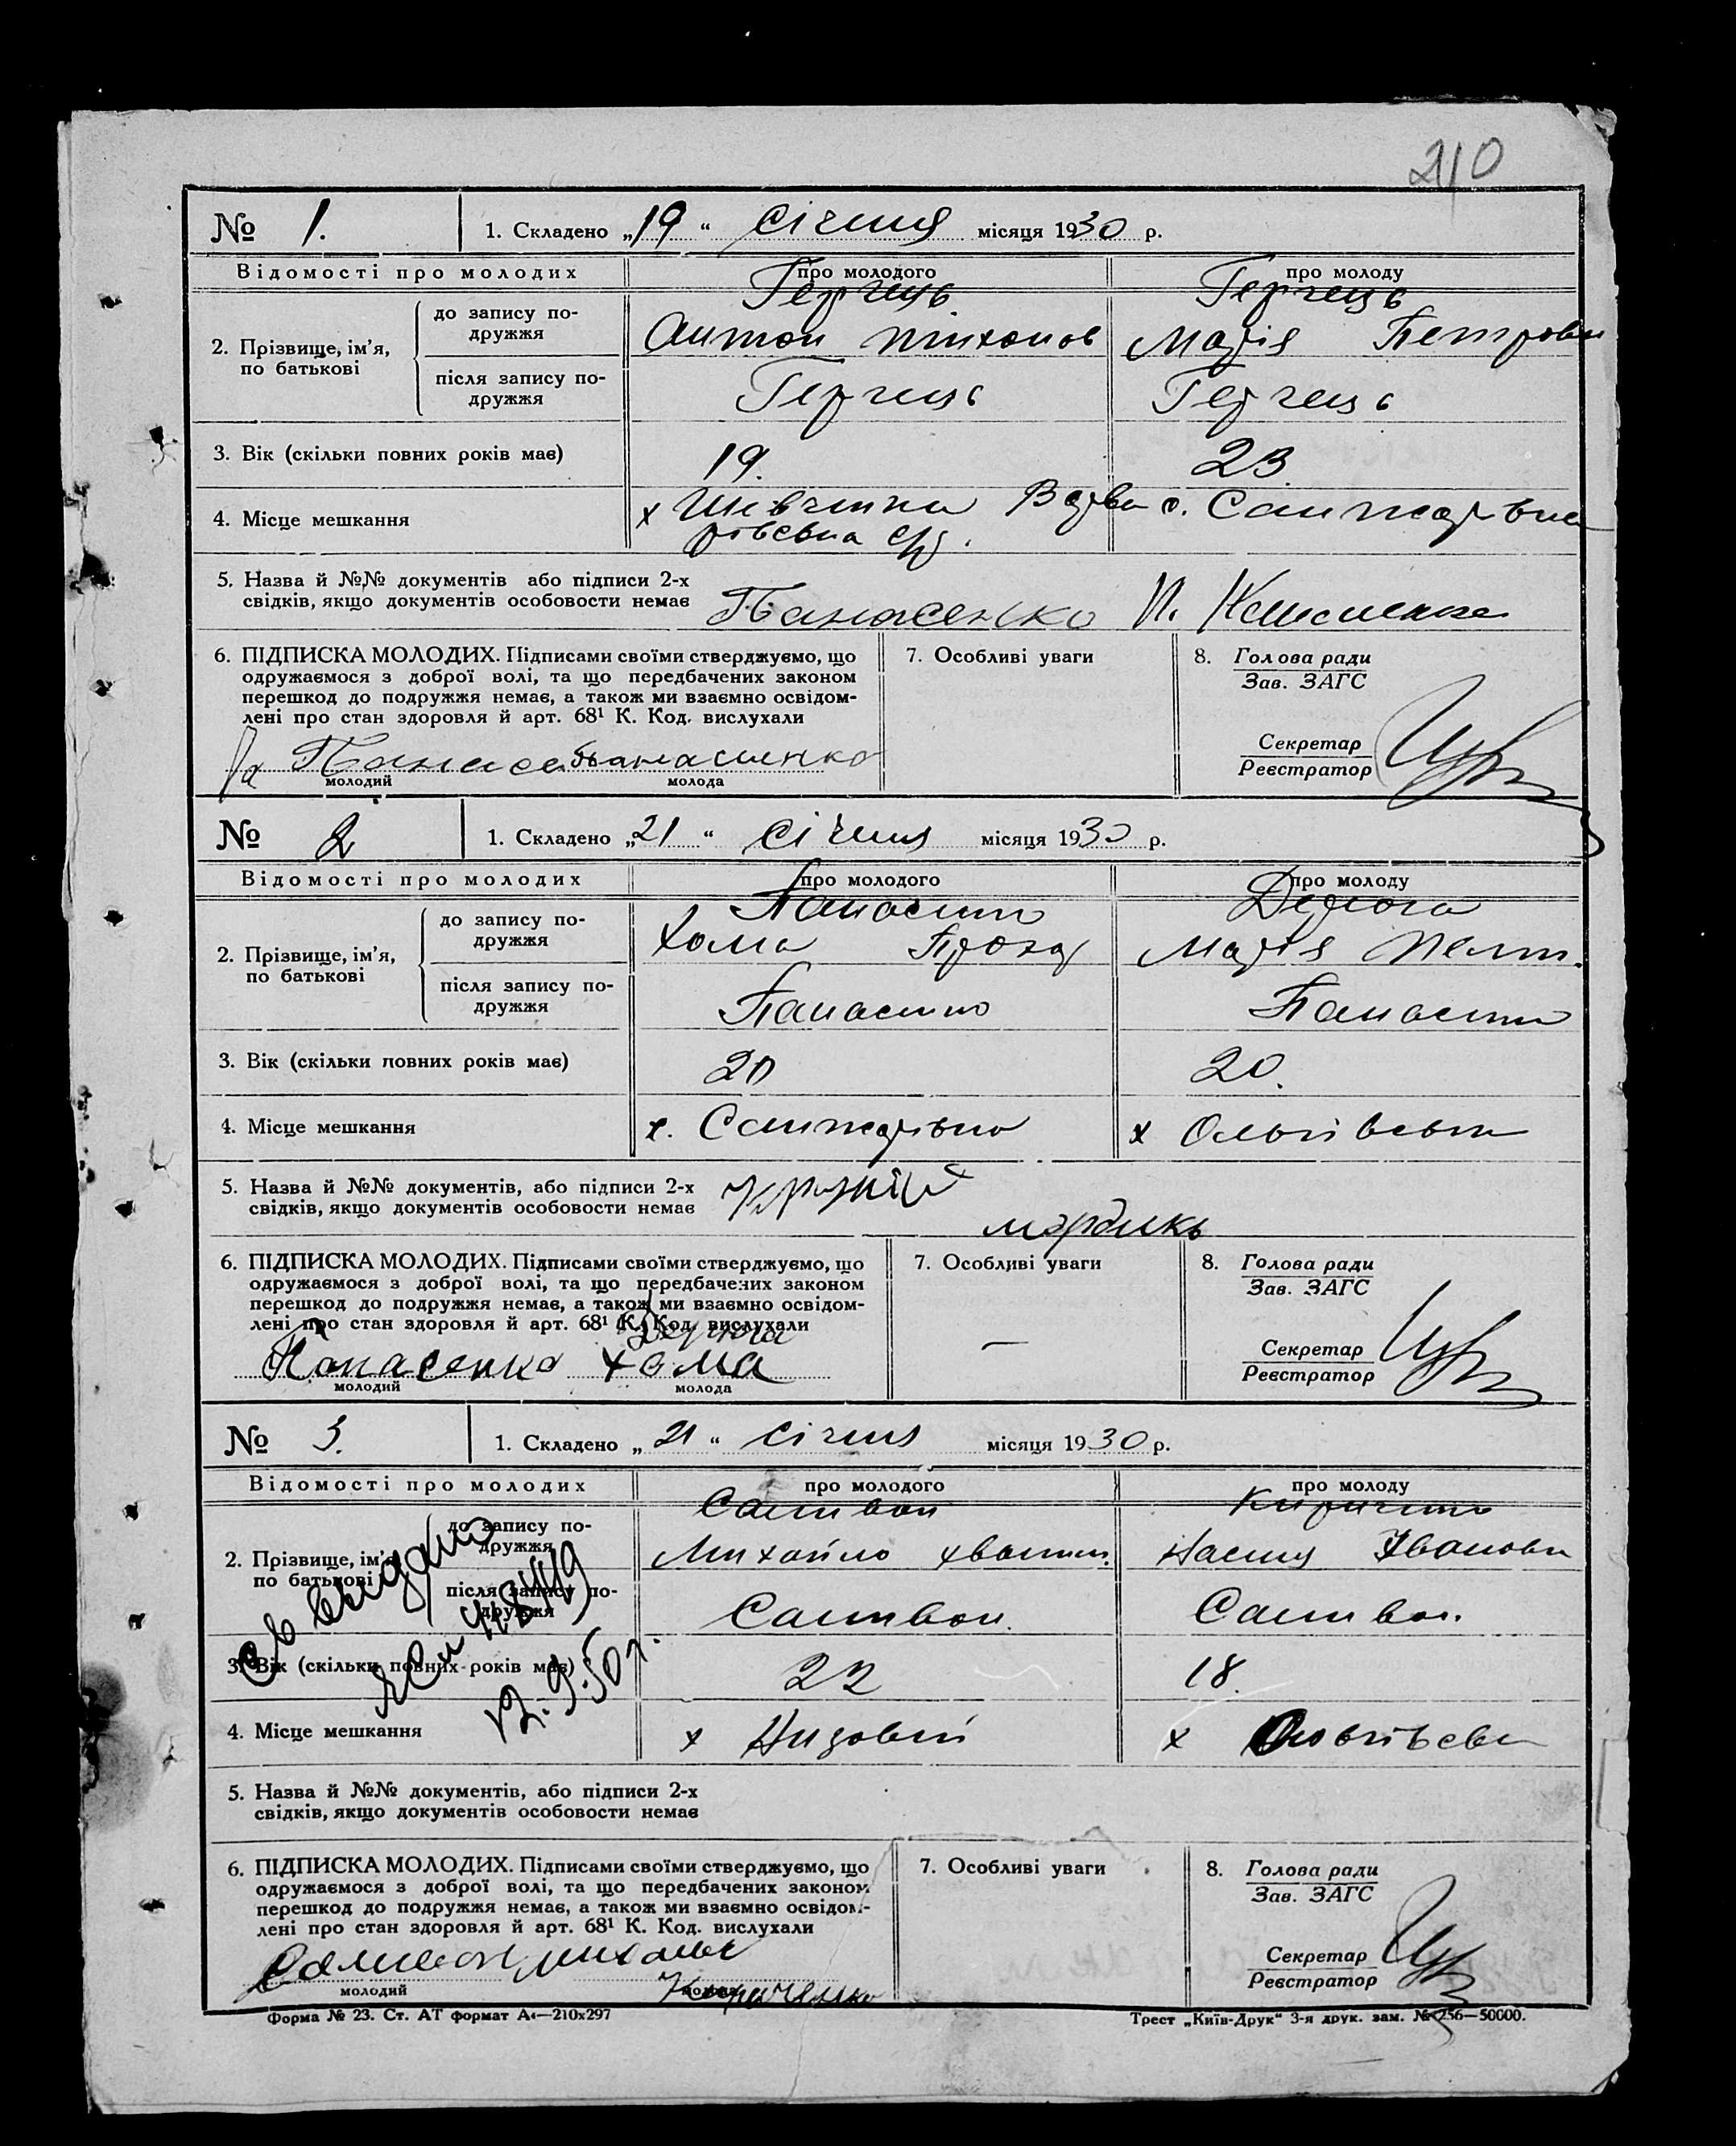 210
№ 1. 1. Складено „19“ січня місяця 1930 р.
Відомості про молодих про молодого про молоду
2. Прізвище, ім'я, по батькові
до запису подружжя Герчець Герчець
Антон Тихонов Марія Петровн
після запису по-
дружжя Герчець Герчець
3. Вік (скільки повних років має) 19. 23.
4. Місце мешкання х Шевченка с. Санжарівка
5. Назва й №№ документів або підписи 2-х
свідків, якщо документів особовости немає Панасенко
6. ПІДПИСКА МОЛОДИХ. Підписами своїми стверджуємо, що
одружаємося з доброї волі, та що передбачених законом
перешкод до подружжя немає, а також ми взаємно освідом-
лені про стан здоровля й арт. 68¹ К. Код. вислухали
За Панасенко
молодий молода
7. Особливі уваги
8. Голова ради
Зав. ЗАГС
Секретар
Реєстратор
№ 2 1. Складено „21“ січня місяця 1930 р.
Відомості про молодих про молодого про молоду
2. Прізвище, ім'я,
по батькові
до запису по-
дружжя Панасенко
Хома Прохор Марія
після запису по-
дружжя Панасенко Панасенко
3. Вік (скільки повних років має) 20 20.
4. Місце мешкання х. Санжарівка х Ольгівська
5. Назва й №№ документів, або підписи 2-х
свідків, якщо документів особовости немає
6. ПІДПИСКА МОЛОДИХ. Підписами своїми стверджуємо, що
одружаємося з доброї волі, та що передбачених законом
перешкод до подружжя немає, а також ми взаємно освідом-
лені про стан здоровля й арт. 68¹ К. Код. вислухали
Панасенко Хома
молодий молода
7. Особливі уваги
—
8. Голова ради
Зав. ЗАГС
Секретар
Реєстратор
№ 3. 1. Складено „21“ січня місяця 1930 р.
Відомості про молодих про молодого про молоду
2. Прізвище, ім'я,
по батькові
до запису по-
дружжя Саливон Кириченко
Михайло Настя Івановн
після запису по-
дружжя Саливон. Саливон.
3. Вік (скільки повних років має) 22 18.
4. Місце мешкання х Низовий х
св выдано
12.9.50 г.
5. Назва й №№ документів, або підписи 2-х
свідків, якщо документів особовости немає
6. ПІДПИСКА МОЛОДИХ. Підписами своїми стверджуємо, що
одружаємося з доброї волі, та що передбачених законом
перешкод до подружжя немає, а також ми взаємно освідом-
лені про стан здоровля й арт. 68¹ К. Код. вислухали
Саливон
Кириченко
молодий
7. Особливі уваги
8. Голова ради
Зав. ЗАГС
Секретар
Реєстратор
Форма № 23. Ст. АТ формат А4—210х297 Трест „Київ-Друк“ 3-я друк. зам. № 256—50000.